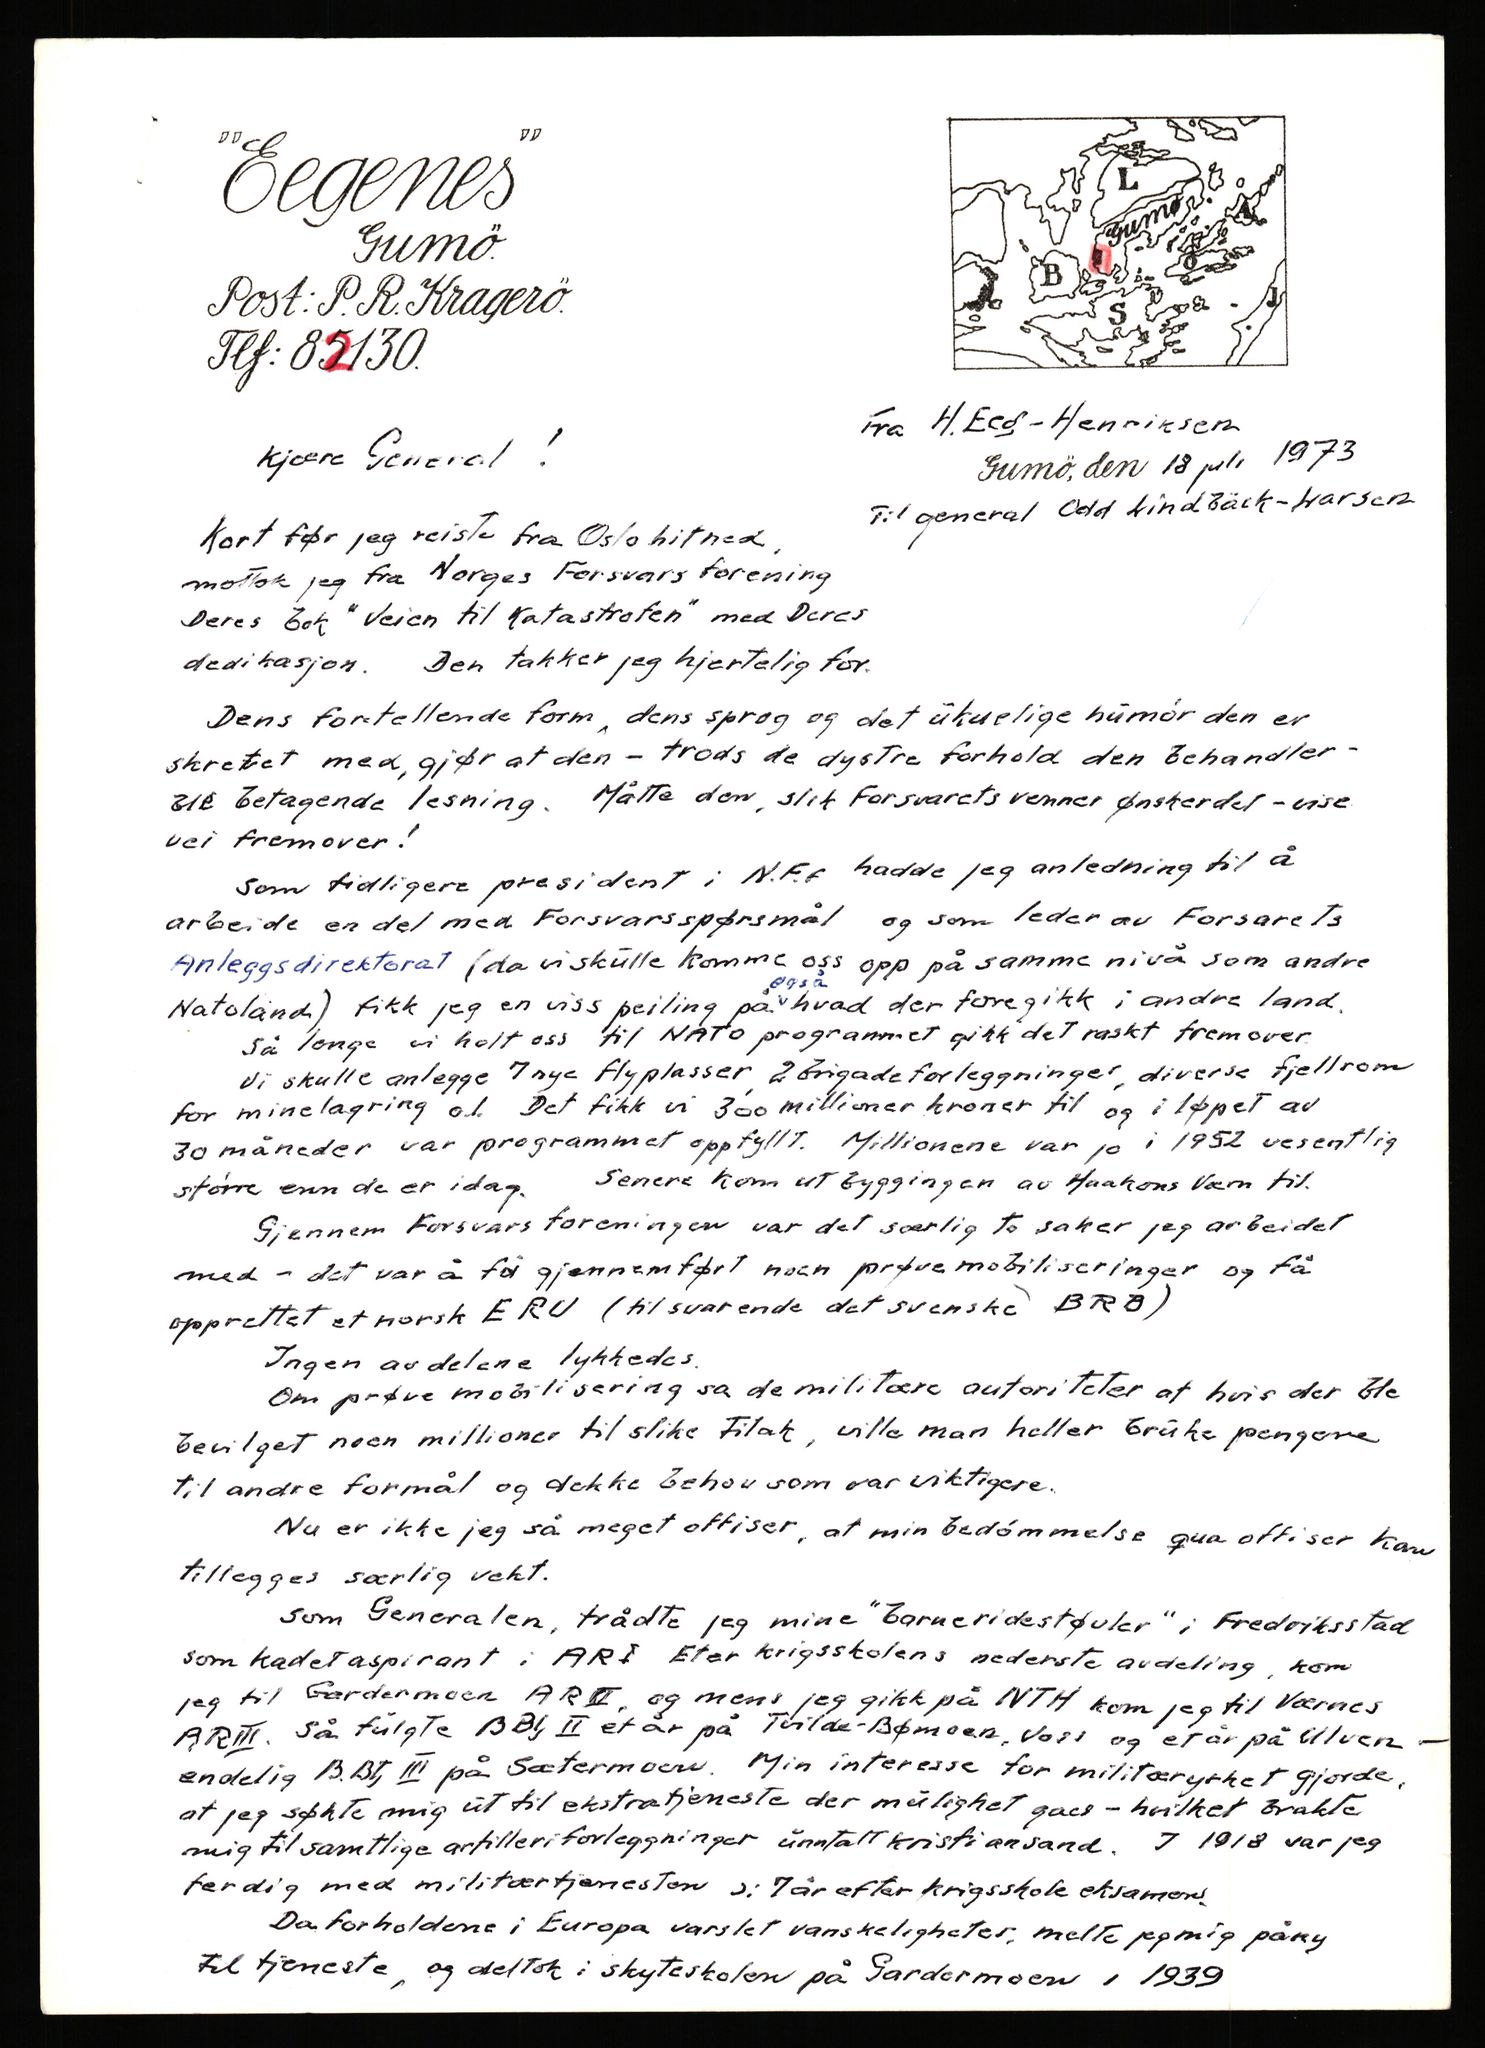 "Eegenes"
Gumö.
Post: P. R. Kragerö.
Tlf: 82130.
L
Gumø
A
B
O
S
J
Fra H. Eeg-Henriksen
Gumö, den 18 juli 1973
Til general Odd Lindbäck-Larsen
Kjære General!
Kort før jeg reiste fra Oslo hitned,
mottok jeg fra Norges Forsvarsforening
Deres bok "Veien til Katastrofen" med Deres
dedikasjon. Den takker jeg hjertelig for.
Dens fortellende form, dens sprog og det ukuelige humór den er
skrevet med, gjør at den - trods de dystre forhold den behandler -
ble betagende lesning. Måtte den, slik Forsvarets venner ønsker det - vise
vei fremover!
Som tidligere president i N.F.f hadde jeg anledning til å
arbeide en del med Forsvarsspørsmål og som leder av Forsarets
Anleggsdirektorat (da vi skulle komme oss opp på samme nivå som andre
Natoland) fikk jeg en viss peiling på også hvad der foregikk i andre land.
Så lenge vi holt oss til NATO programmet gikk det raskt fremover
Vi skulle anlegge 7 nye flyplasser, 2 brigadeforleggninger, diverse fjellrom
for minelagring o.l. Det fikk vi 300 millioner kroner til og i løpet av
30 måneder var programmet oppfyllt. Millionene var jo i 1952 vesentlig
större enn de er idag. Senere kom utbyggingen av Haakons Værn til.
Gjennem Forsvarsforeningen var det særlig to saker jeg arbeidet
med - det var å få gjennemført noen prøvemobiliseringer og få
opprettet et norsk ERU (tilsvarende det svenske BRB)
Ingen av delene lykkedes.
Om prøvemobilisering sa de militære autoriteter at hvis der ble
bevilget noen millioner til slike tilak, ville man heller bruke pengene
til andre formål og dekke behov som var viktigere.
Nu er ikke jeg så meget offiser, at min bedömmelse qua offiser kan
tillegges særlig vekt.
Som Generalen, trådte jeg mine "barneridestøvler" i Fredriksstad
som kadetaspirant i AR I Eter krigsskolens nederste avdeling, kom
jeg til Gardermoen AR II, og mens jeg gikk på NTH kom jeg til Værnes
AR III. Så fulgte B Btj II et år på Tvilde-Bømoen, Voss og et år på Ulven -
endelig B.Btj III på Sætermoen. Min interesse for militæryrket gjorde,
at jeg søkte mig ut til ekstratjeneste der mulighet gaes - hvilket brakte
mig til samtlige artilleriforleggninger unntatt Kristiansand. I 1918 var jeg
ferdig med militærtjenesten ɔ: 7 år efter krigsskole eksamen.
Da forholdene i Europa varslet vanskeligheter, melte jeg mig påny
til tjeneste, og deltok i skyteskolen på Gardermoen i 1939